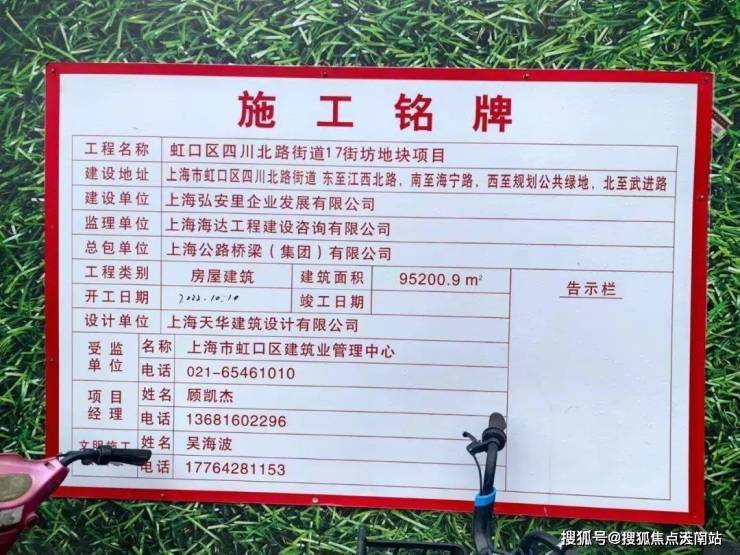 施工铭牌
工程名称 虹口区四川北路街道17街坊地块项目
建设地址 上海市虹口区四川北路街道 东至江西北路，南至海宁路，西至规划公共绿地，北至武进路
建设单位 上海弘安里企业发展有限公司
监理单位 上海海达工程建设咨询有限公司
总包单位 上海公路桥梁（集团）有限公司
工程类别 房屋建筑 建筑面积 95200.9 m²
告示栏
开工日期 2022.10.10 竣工日期
设计单位 上海天华建筑设计有限公司
受监单位 名称 上海市虹口区建筑业管理中心
电话 021-65461010
项目经理 姓名 顾凯杰
电话 13681602296
文明施工 姓名 吴海波
电话 17764281153
搜狐号@搜狐焦点天南站